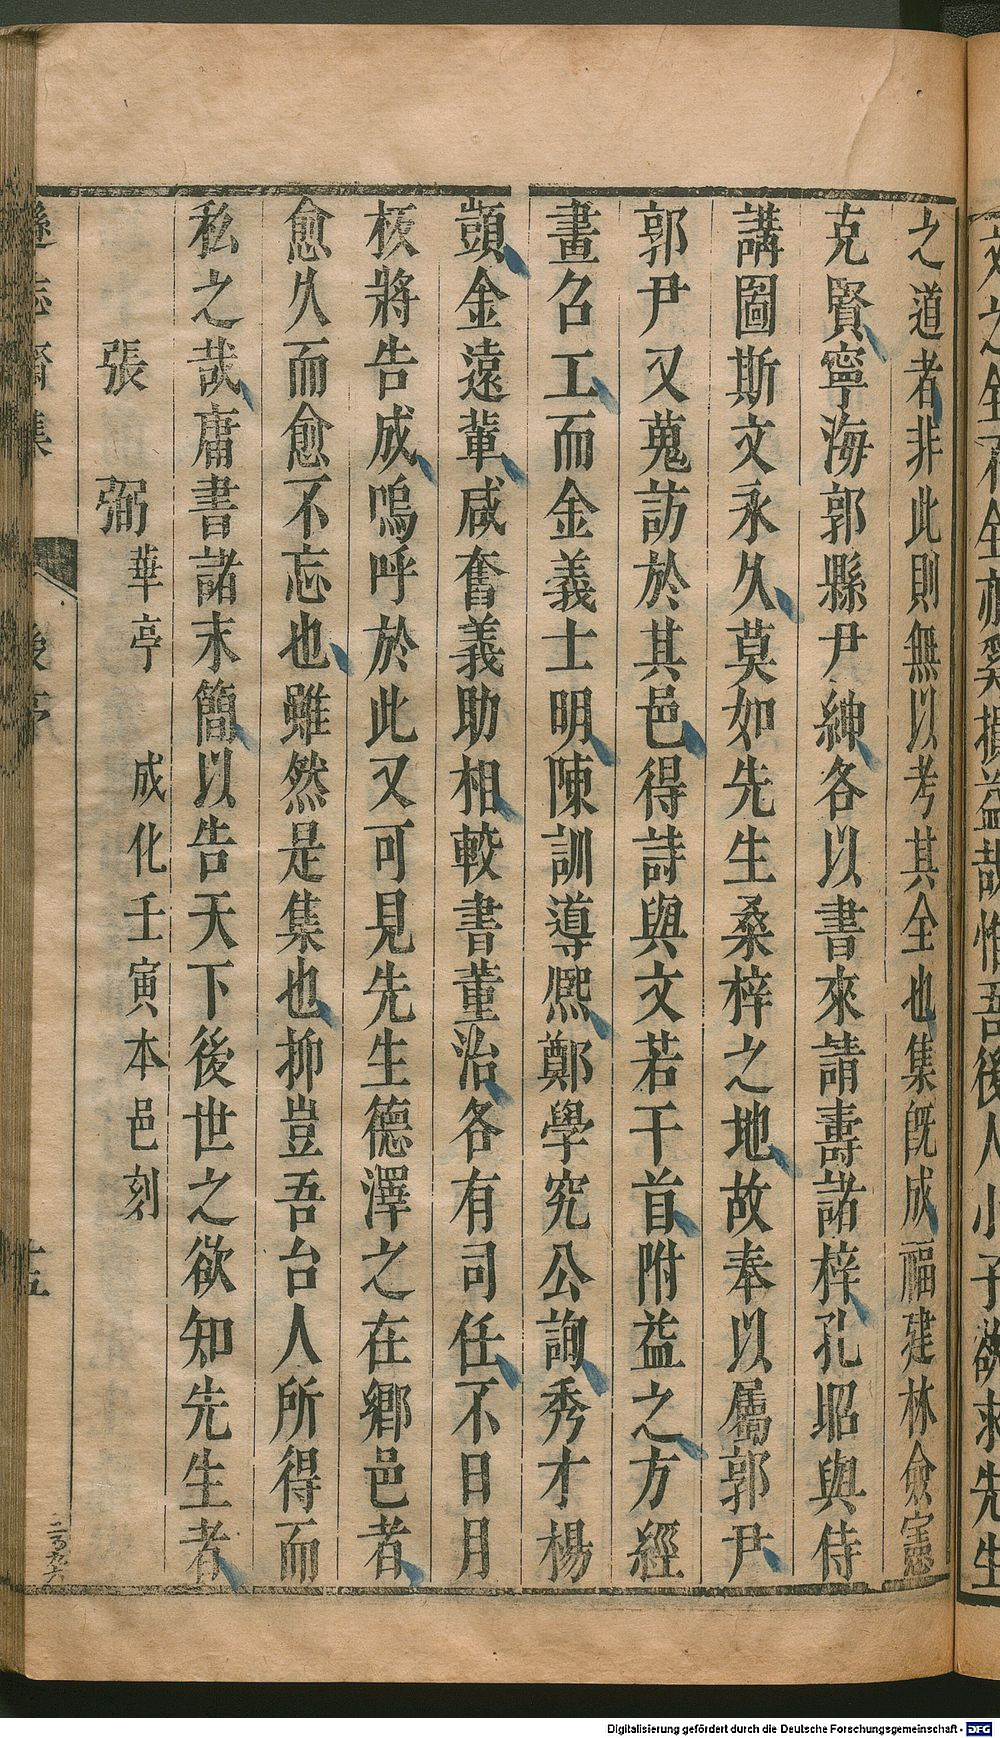 之道者非此則無以考其全也集既成福建林僉憲
克賢寧海郭縣尹紳各以書來請壽諸梓孔昭與侍
講圖斯文永久莫如先生桑梓之地故奉以屬郭尹
郭尹又蒐訪於其邑得詩與文若干首附益之方經
畫召工而金義士明陳訓導熈鄭學究公詢秀才楊
顗金遠輩咸奮義助相較書董治各有司任不日月
板將告成嗚呼於此又可見先生德澤之在鄉邑者
愈久而愈不忘也雖然是集也抑豈吾台人所得而
私之哉庸書諸末簡以告天下後世之欲知先生者
張 弼 華亭 成化壬寅本邑刻
遜志齋集 後序 十五
Digitalisierung gefördert durch die Deutsche Forschungsgemeinschaft - DFG